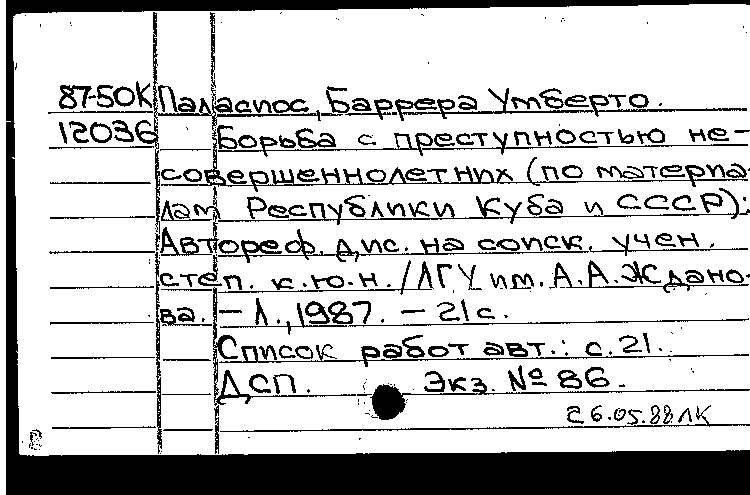 87-50К Паласиос, Баррера Умберто.
12036 Борьба с преступностью не-
совершеннолетних (по материа-
лам Республики Куба и СССР):
Автореф. дис. на соиск. учен.
степ. к.ю.н. /ЛГУ им. А.А. Ждано-
ва. – Л., 1987. – 21 с.
Список работ авт.: с. 21.
ДСП. Экз. № 86.
26.05.88 ЛК